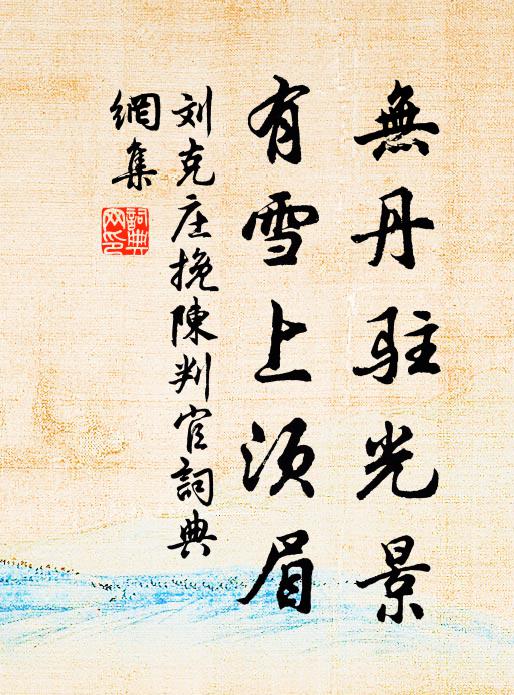 無丹驻光景
有雪上须眉
刘克庄挽陳判官詞典
網集
詞典
网印